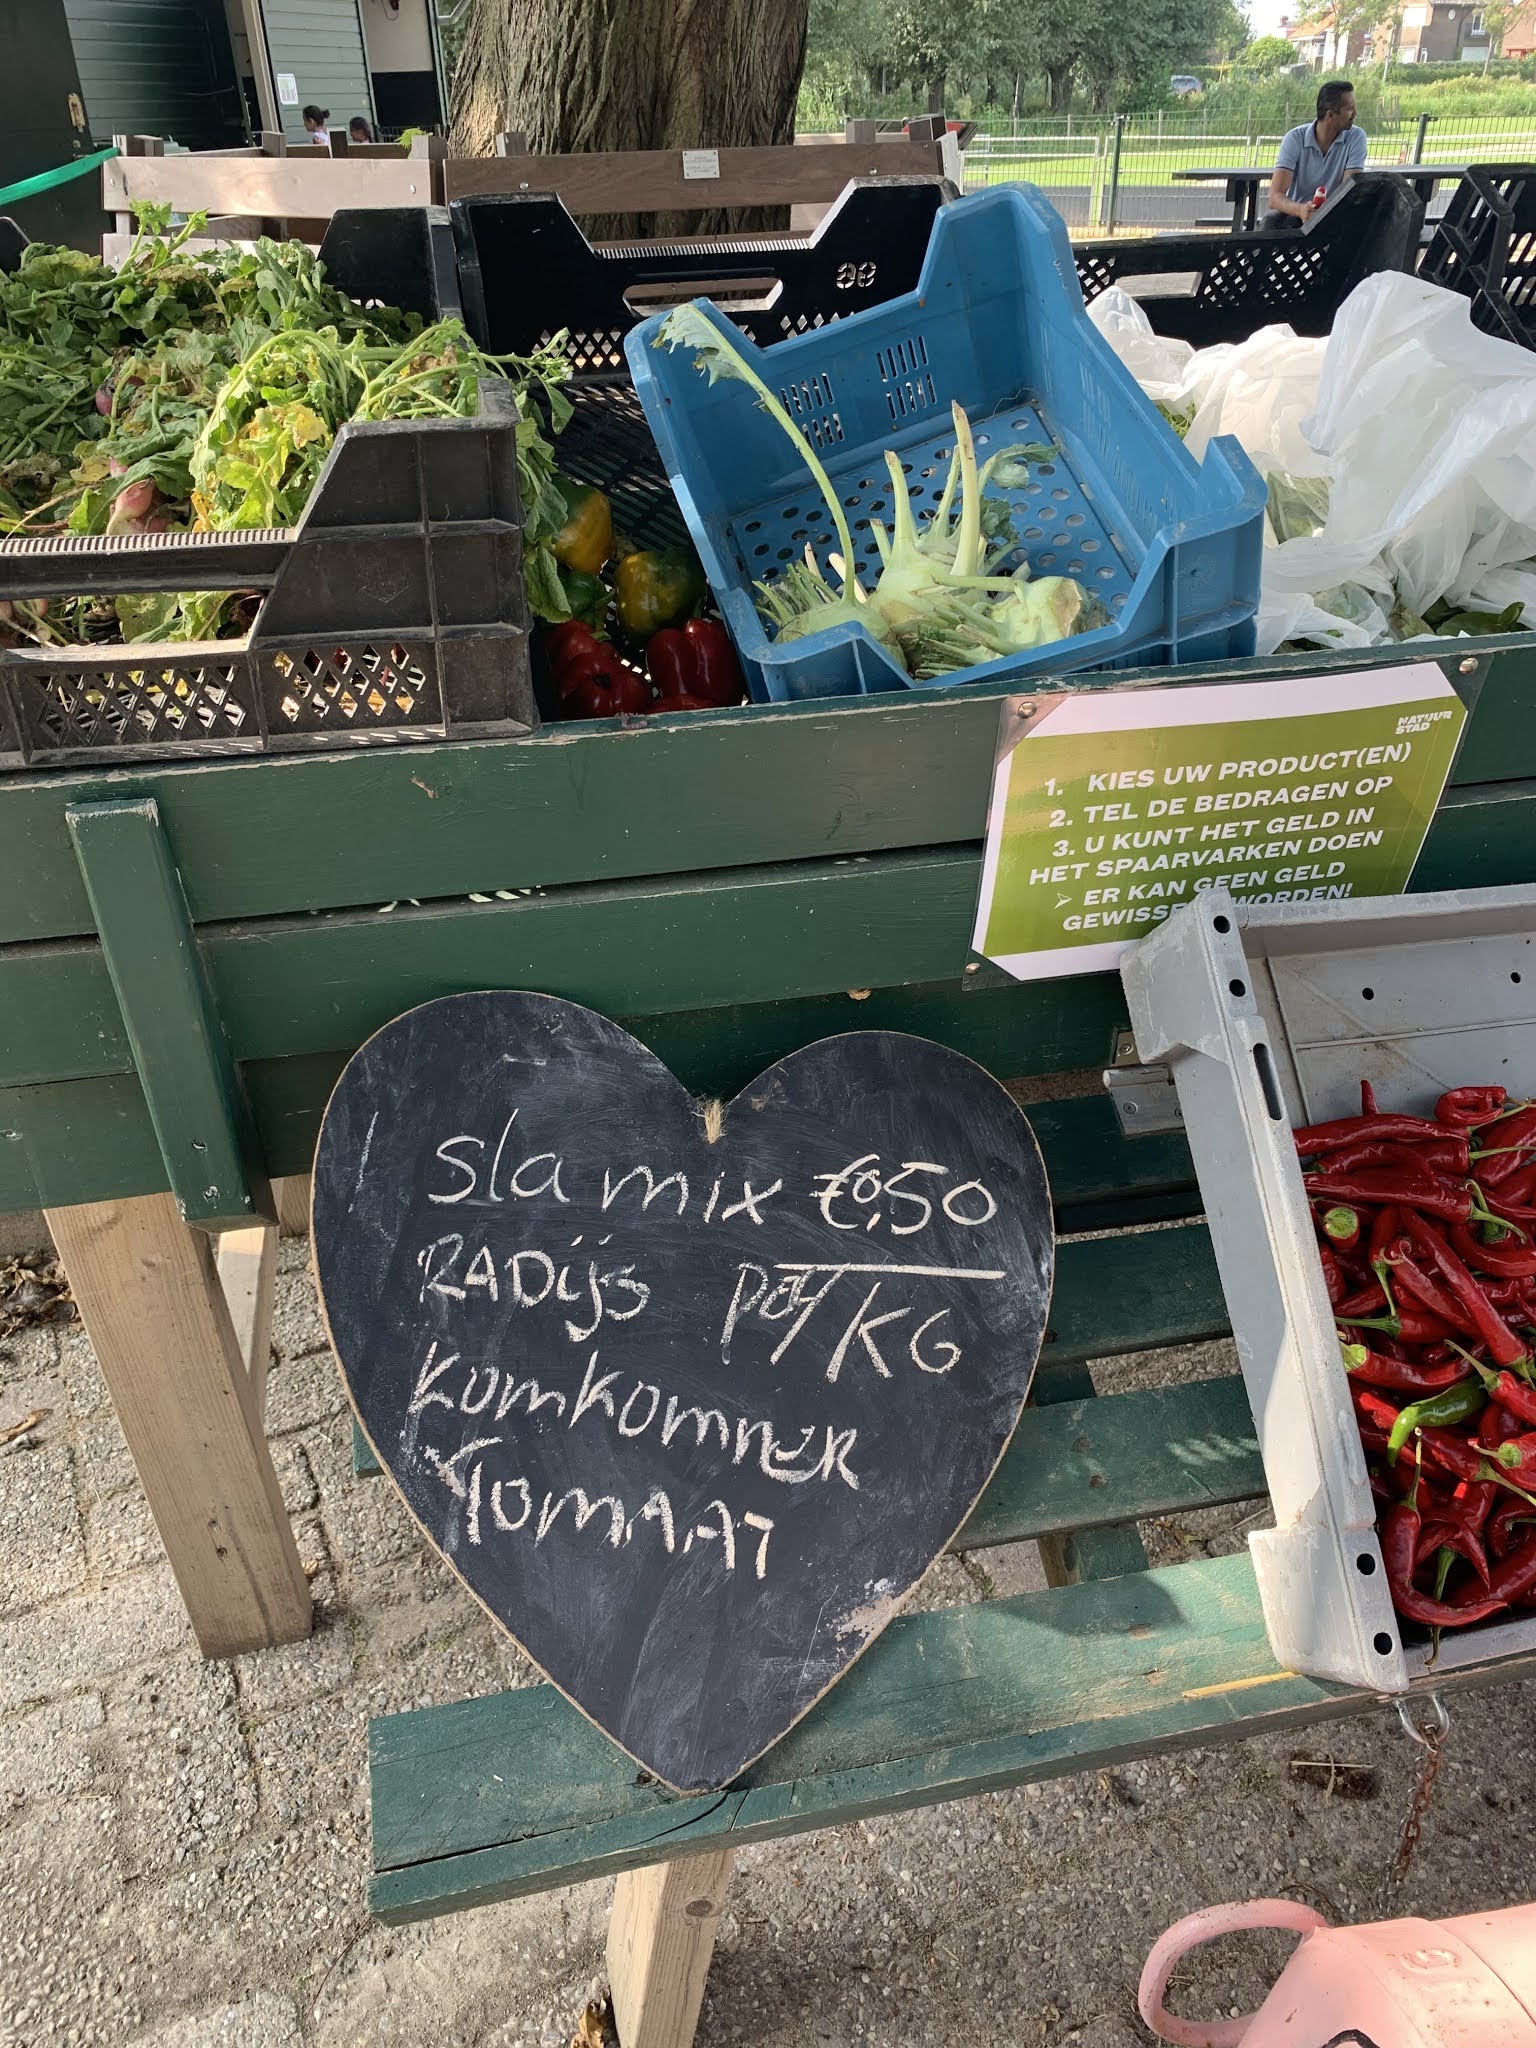 NATUUR
STAD
1. KIES UW PRODUCT(EN)
2. TEL DE BEDRAGEN OP
3. U KUNT HET GELD IN
HET SPAARVARKEN DOEN
➢ ER KAN GEEN GELD
GEWISSE WORDEN!
sla mix €0,50
RADijs per/KG
KomKommER
TOMAAT